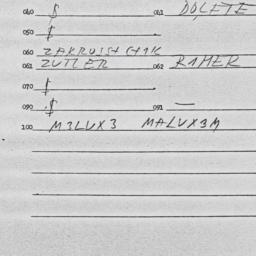 040 $ 041 DOLETE
050 $
060 ZAKRUSSTCHAK
061 ZUTLER 062 RAMER
070 $
090 $ 091 —
100 M3LVX3 MALVX3M